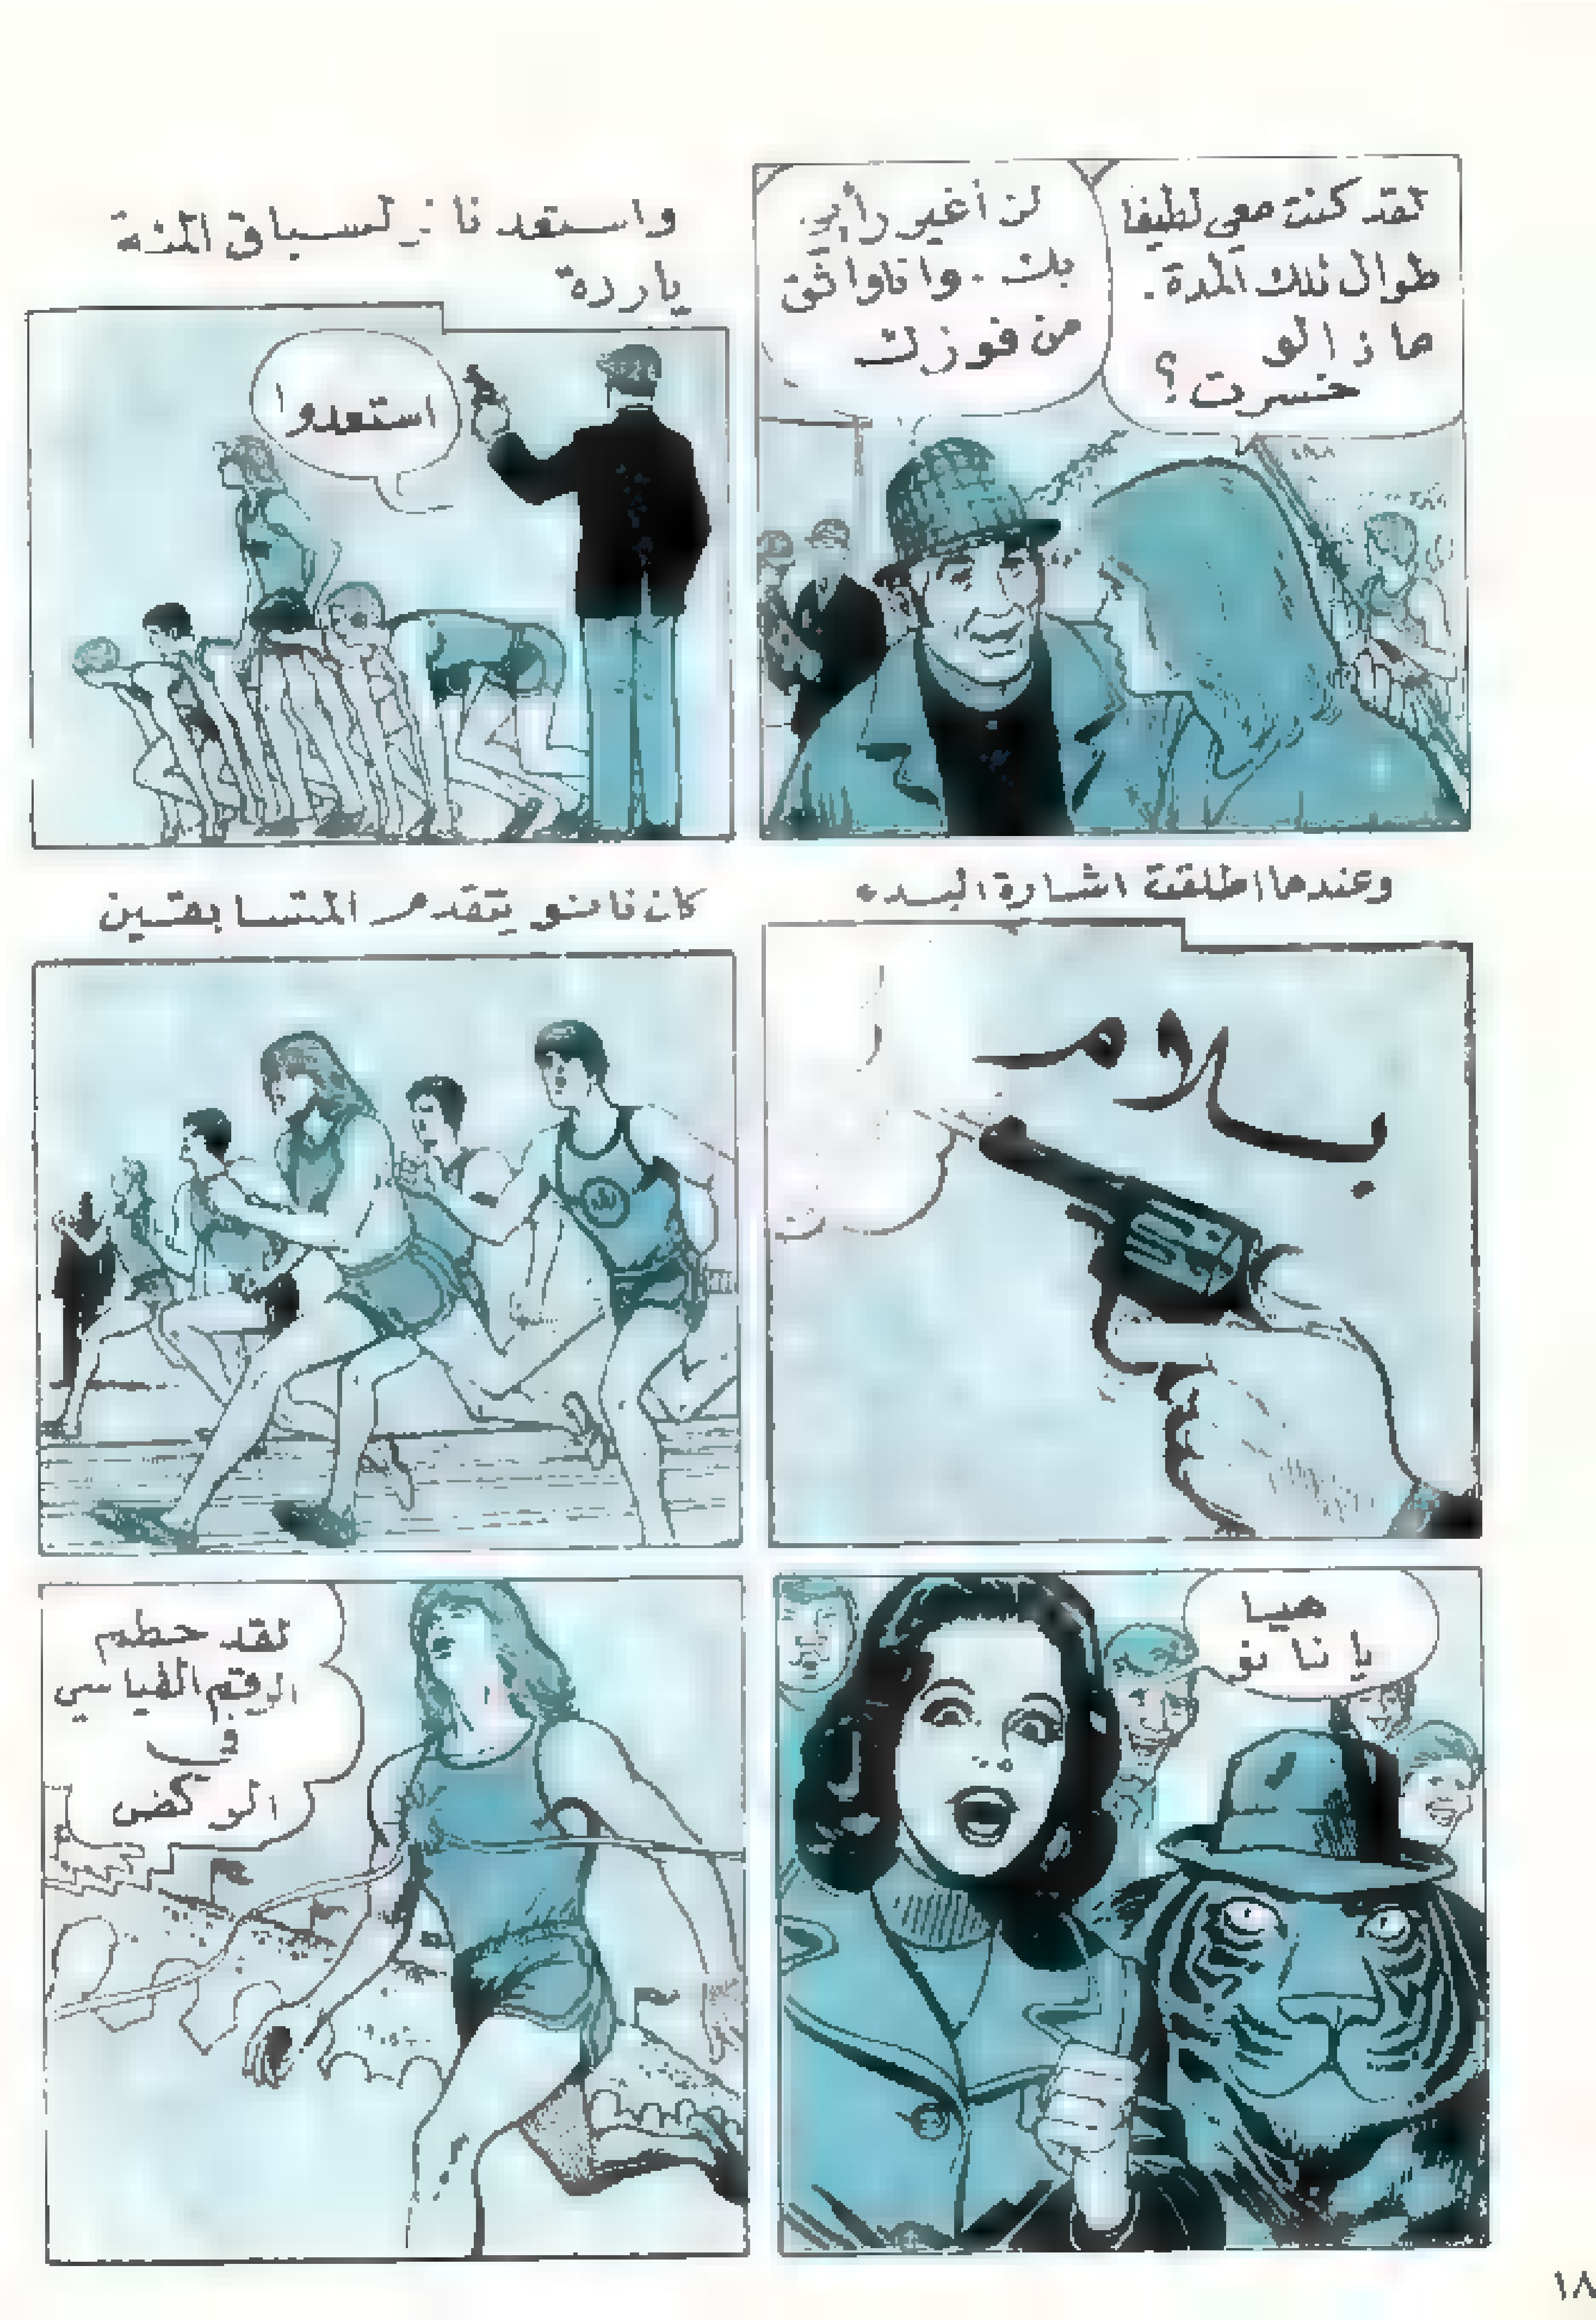 لقد كنت معي لطيفا
طوال تلك المدة.
ماذا لو
خسرت؟
لن أغير رأيي
بك. وانا واثق
من فوزك
واستعد نانو لسباق المئة
ياردة
استعدوا
وعندما اطلقت اشارة البدء
بلام
كان نانو يتقدم المتسابقين
هيا
يا نانو
لقد حطم
الرقم القياسي
في
الركض
١٨